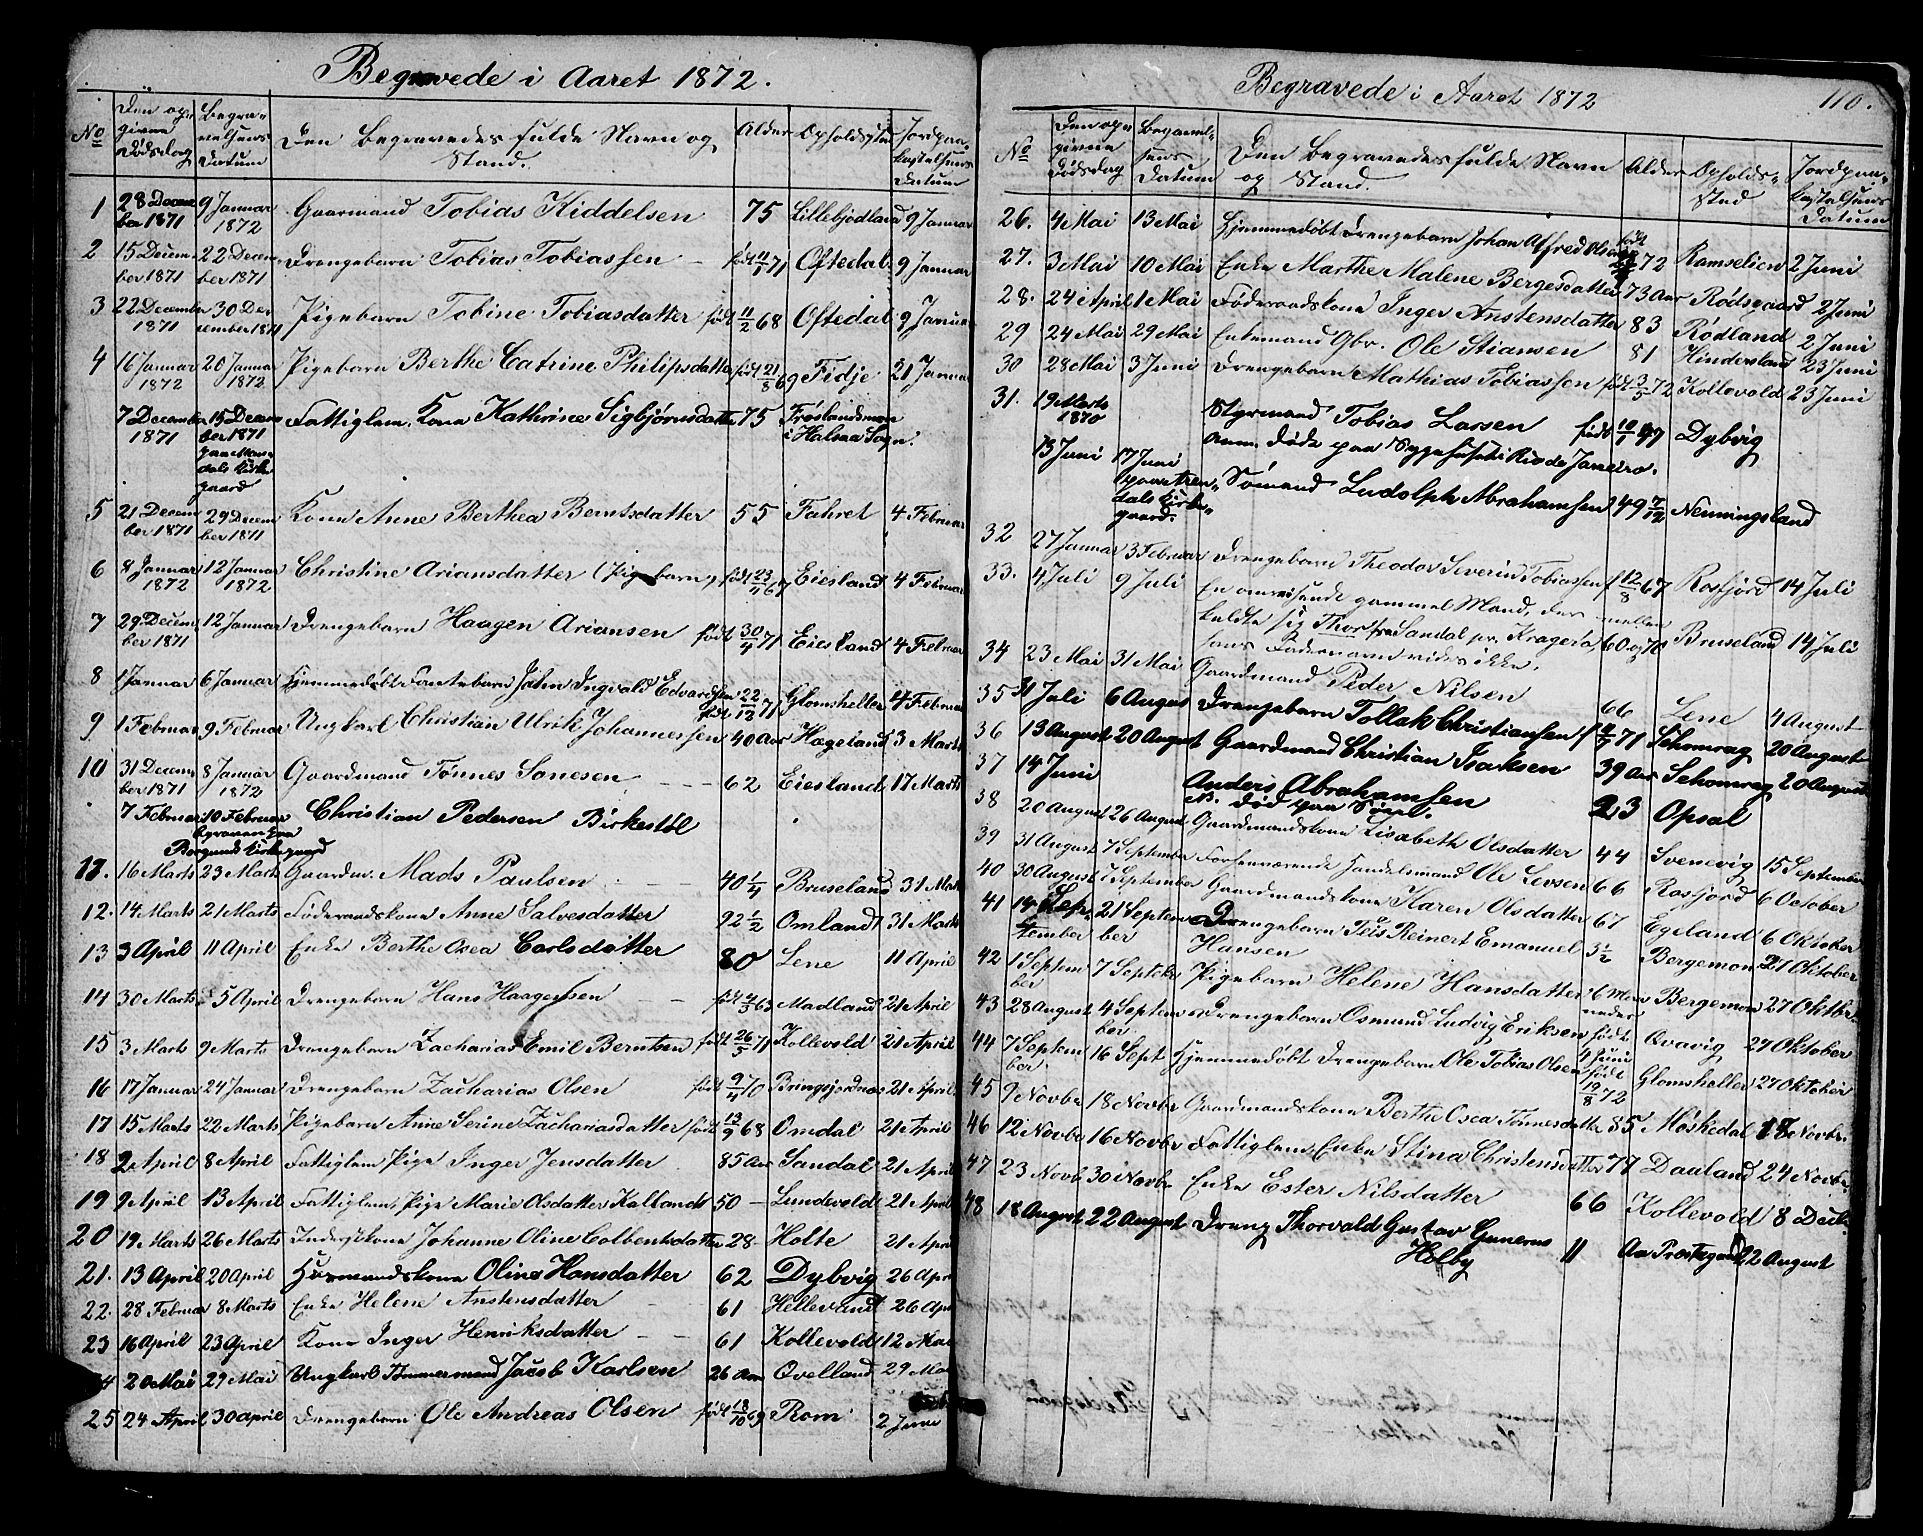 Begravede i Aaret 1872.
No
Den op-
givne
Dødsdag
Begra-
velsens
Datum
Den Begravedes fulde Navn og
Stand.
Alder
Opholdssted
Jordpaa-
kastelsens
Datum
1 28 Decem- 9 Januar Gaarmand Tobias Kiddelsen 75 Lillebjodland 9 Januar
ber 1871 1872
2 15 Decem- 22 Decem- Drengebarn Tobias Tobiassen – født 71 Oftedal 9 Januar
ber 1871 ber 1871
3 22 December 30 De- Pigebarn Tobine Tobiasdatter født 11/2 68 Oftedal 9 Januar
1871 cember 1871
4 16 Januar 20 Januar Pigebarn Berthe Catrine Philipsdatter født 21/8 69 Fidje 21 Januar
1872 1872
7 December 15 Decem- Fattiglem. Kone Kathrine Sigbjørnsdatter 75 Frøslandsmoen
1871 ber 1871 i Halsaa Sogn.
paa Man-
dals Kirke
gaard
5 21 Decem 29 Decem Kone Anne Berthea Berntsdatter 55 Fahret 4 Februar
ber 1871 ber 1871
6 8 Januar 12 Januar Christine Ariansdatter (Pigebarn) født 23/4 67 Eiesland 4 Februar
1872 1872
7 29 Decem 12 Januar Drengebarn Haagen Ariansen født 30/4 71 Eiesland 4 Februar
ber 1871
8 1 Januar 6 Januar Hjemmedøbt John Ingvald Edvardsen født 22/12 71 Glomsheller 4 Februar
9 1 Februar 9 Februar Ungkarl Christian Ulrik Johannessen 40 Aar Hægeland 3 Marts
10 31 Decem 8 Januar Gaardmand Tønnes Sonesen 62 Eiesland 17 Marts
ber 1871 1872
7 Februar 10 Februar Christian Pedersen Birkestøl
Kirkegaard
11. 16 Marts 23 Marts Gaardm. Mads Paulsen 40 1/4 Bruseland 31 Marts
12. 14 Marts 21 Marts Føderaadskone Anne Salvesdatter 92 1/2 Omland 31 Marts
13 3 April 11 April Enke Berthe Osea Carlsdatter 80 Lene 11 April
14 30 Marts 5 April Drengebarn Hans Haagensen født 63 Madland 21 April
15 3 Marts 9 Marts Drengebarn Zacharias Emil Berntsen født 26/5 71 Kollevold 21 April
16 17 Januar 24 Januar Drengebarn Zacharias Olsen født 9/4 70 Bringsjordnæs 21 April
17 15 Marts 22 Marts Pigebarn Anne Serine Zachariasdatter født 13/9 68 Omdal 21 April
18 2 April 8 April Fattiglem Pige Inger Jensdatter 85 Aar Sandal 21 April
19 9 April 13 April Fattiglem Pige Marie Olsdatter Kalland 50 – Lundevold 21 April
20 19 Marts 26 Marts Kone Johanne Oline Colbentsdatter 28 Holte 21 April
21. 13 April 20 April Huusmandskone Oline Hansdatter 62 Dybvig 26 April
22. 28 Februar 8 Marts Enke Helene Anstensdatter 61 Hellevand 26 Apr
23 16 April 23 April Kone Inger Henriksdatter 61 Kollevold 12 Mai
24 20 Mai 29 Mai Ungkarl Tømmermand Jacob Karlsen 26 Aar Ovelland 29 Mai
25 24 April 30 april Drengebarn Ole Andreas Olsen født 18/10 69 Rom 2 Juni
Begravede i Aaret 1872
110.
No
Den op-
givne
Dødsdag
Begravel-
sens
Datum
Den Begravedes fulde Navn
og Stand.
Alder
Opholds-
Sted
Jordpaa-
kastelsens
Datum
26. 4 Mai 13 Mai Hjemmedøbt Drengebarn Johan Alfred født 72 Ramselien 2 Juni
27. 3 Mai 10 Mai Enke Marthe Malene Bergesdatter 73 Aar Rødsgaard 2 Juni
28. 24 April 1 Mai Føderaadskone Inger Anstensdatter 83 Rødland 2 Juni
29 24 Mai 29 Mai Enkemand Gbr. Ole Stiansen 81 Hindersland 23 Juni
30 28 Mai 3 Juni Drengebarn Mathias Tobiassen født 3/5 72 Kollevold 23 Juni
31. 19 Marts Styrmand Tobias Larsen født 10/1 47 Dybvig
1870 Anm. Døde paa Sygehuset i Rio de Janeiro.
13 Juni 17 Juni Sømand Ludolph Abrahamsen 49 7/12 Nenningsland
paa Aren-
dals Kirke-
gaard.
32 27 Januar 3 Februar Drengebarn Theodor Severin Tobiassen f 12/8 67 Rosfjord 14 Juli
33. 4 Juli 9 Juli En omreisende gammel Mand, der mellem
kaldte sig Thor fra Sandal pr. Kragerø, 60 og 70 Bruseland 14 Juli
hans Fadernavn vides ikke.
34 23 Mai 31 Mai Gaardmand Peder Nilsen 66 Lene 4 August
35 31 Juli 6 August Drengebarn Tollak Christiansen f 71 Schomrag 20 August
36 13 August 20 August Gaardmand Christian Isaksen 39 Aar Schomrag 20 August
37 14 Juni Anders Abrahamsen 23 Opsal
død paa Søen.
38 20 August 26 August Gaardmandskone Lisabeth Olsdatter 44 Svenevig 15 September
39 31 August 7 September Forhenværende Handelsmand Ole Levsen 66 Rosfjord 6 October
40 30 August 7 September Gaardmandskone Karen Olsdatter 67 Egeland 6 Oktober
41 14 Sep- 21 Septem Drengebarn Teis Reinert Emanuel 3 1/2 Bergemoen 27 Oktober
tember ber Hansen
42 1 Septem 7 Septbr Pigebarn Helene Hansdatter 6 Maa Bergemoen 27 Oktbr.
ber neder
43 28 August 4 Septem Drengebarn Osmund Ludvig Eriksen født Qvavig 27 Oktober
ber 4 Juni
44 7 Septem 16 Sept Hjemmedøbt Drengebarn Ole Tobias Olsen født Glomsheller 27 Oktober
ber. 19/8 72
45 9 Novbr 18 Novbr Gaardmandskone Berthe Osea Tønnesdatter 85 Møskedal 18 Novbr.
46 12 Novbr 16 Novbr Fattiglem Enke Stina Christensdatter 77 Dauland 24 Novbr.
47 23 Novbr 30 Novbr Enke Ester Nilsdatter 66 Kollevold 8 Decbr
48 18 August 22 August Dreng Thorvald Gustav Gunerus
Holby 11 Aa Præstegaard 22 August